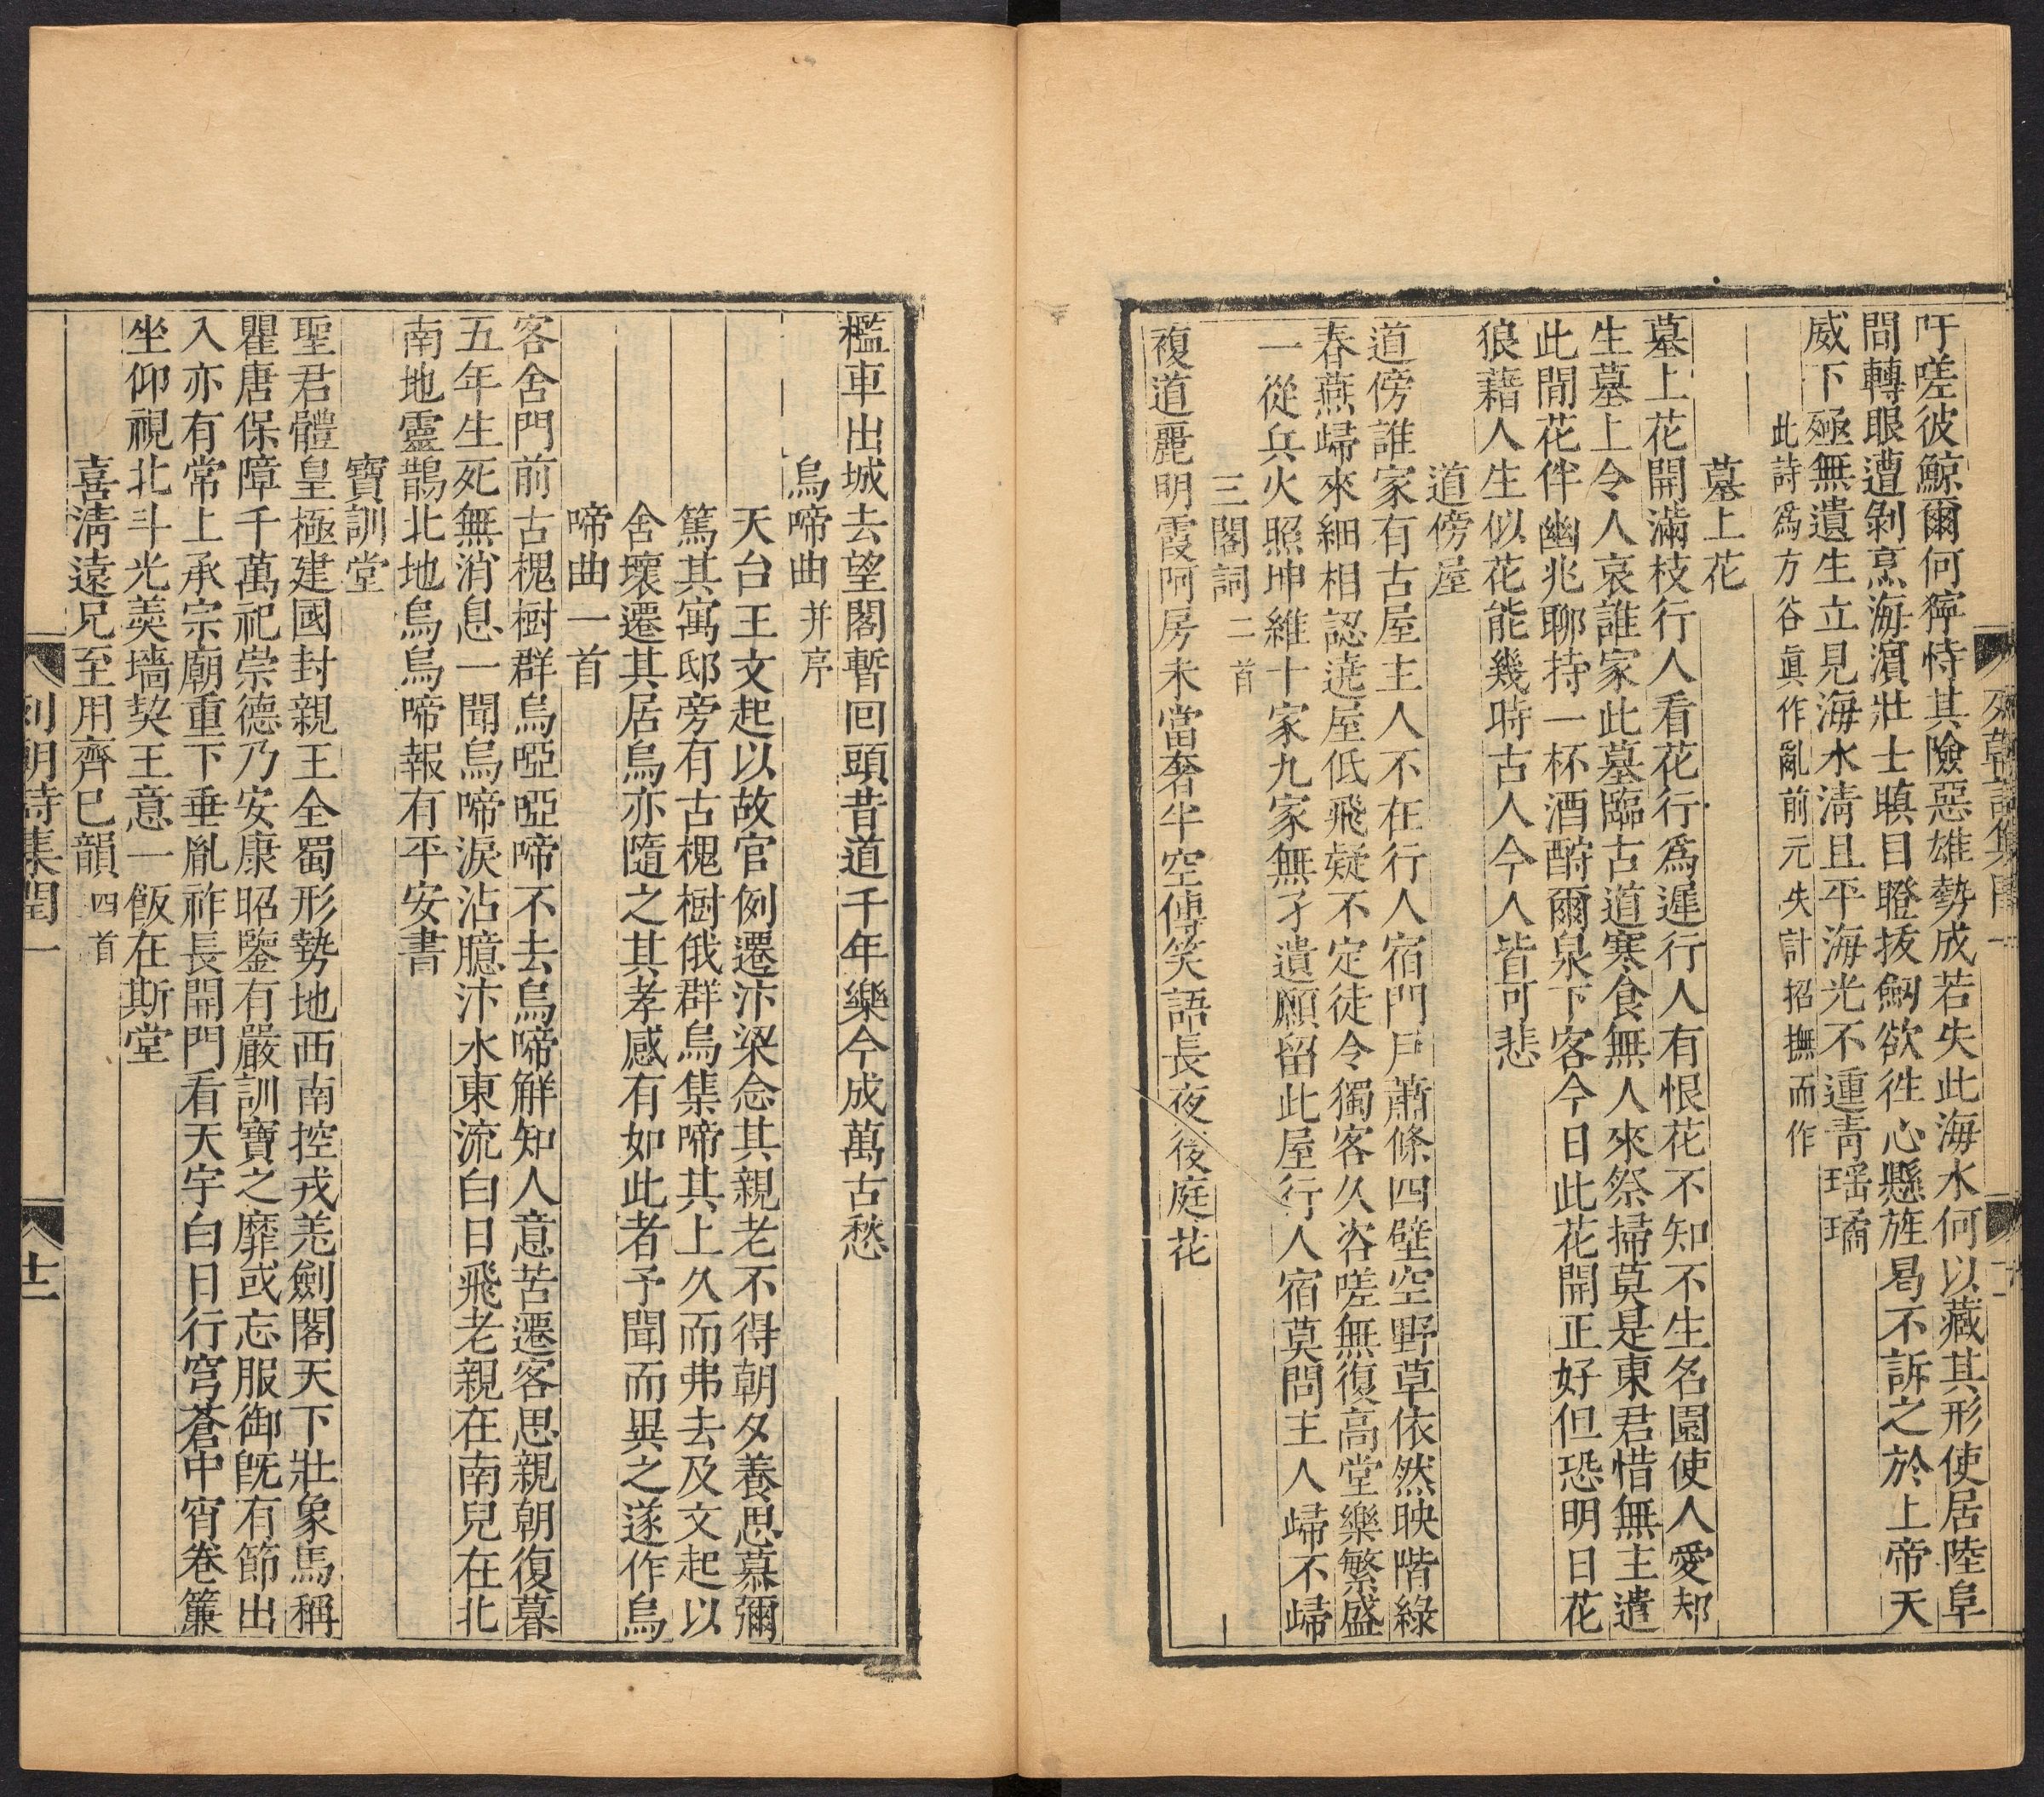 吁嗟彼鯨爾何獰恃其險惡雄勢成若失此海水何以藏其形使居陸阜
間轉眼遭剝烹海濵壯士瞋目瞪拔劔欲徃心懸旌曷不訴之於上帝天
威下殛無遺生立見海水淸且平海光不運靑瑶璚
此詩爲方谷眞作亂前元失計招撫而作
墓上花
墓上花開滿枝行人看花行爲遲行人有恨花不知不生名園使人愛却
生墓上令人哀誰家此墓臨古道寒食無人來祭掃莫是東君惜無主遣
此間花伴幽兆聊持一杯酒酹爾泉下客今日此花開正好但恐明日花
狼藉人生似花能幾時古人今人皆可悲
道傍屋
道傍誰家有古屋主人不在行人宿門戶蕭條四壁空野草依然映階綠
春燕歸來細相認遶屋低飛疑不定徒令獨客久咨嗟無復高堂樂繁盛
一從兵火照坤維十家九家無孑遺願留此屋行人宿莫問主人歸不歸
三閣詞二首
複道麗明霞阿房未當奢半空傳笑語長夜後庭花
檻車出城去望閣暫回頭昔道千年樂今成萬古愁
烏啼曲并序
天台王文起以故官例遷汴梁念其親老不得朝夕養思慕彌
篤其寓邸旁有古槐樹俄群烏集啼其上久而弗去及文起以
舍壞遷其居烏亦隨之其孝感有如此者予聞而異之遂作烏
啼曲一首
客舍門前古槐樹群烏啞啞啼不去烏啼解知人意苦遷客思親朝復暮
五年生死無消息一聞烏啼淚沾臆汴水東流白日飛老親在南兒在北
南地靈鵲北地烏烏啼報有平安書
寶訓堂
聖君體皇極建國封親王全蜀形勢地西南控戎羌劍閣天下壯象馬稱
瞿唐保障千萬祀崇德乃安康昭鑒有嚴訓寶之靡或忘服御旣有節出
入亦有常上承宗廟重下垂胤祚長開門看天宇白日行穹蒼中宵卷簾
坐仰視北斗光羮墻契王意一飯在斯堂
喜淸遠兄至用齊巳韻四首
列朝詩集閏一
十二